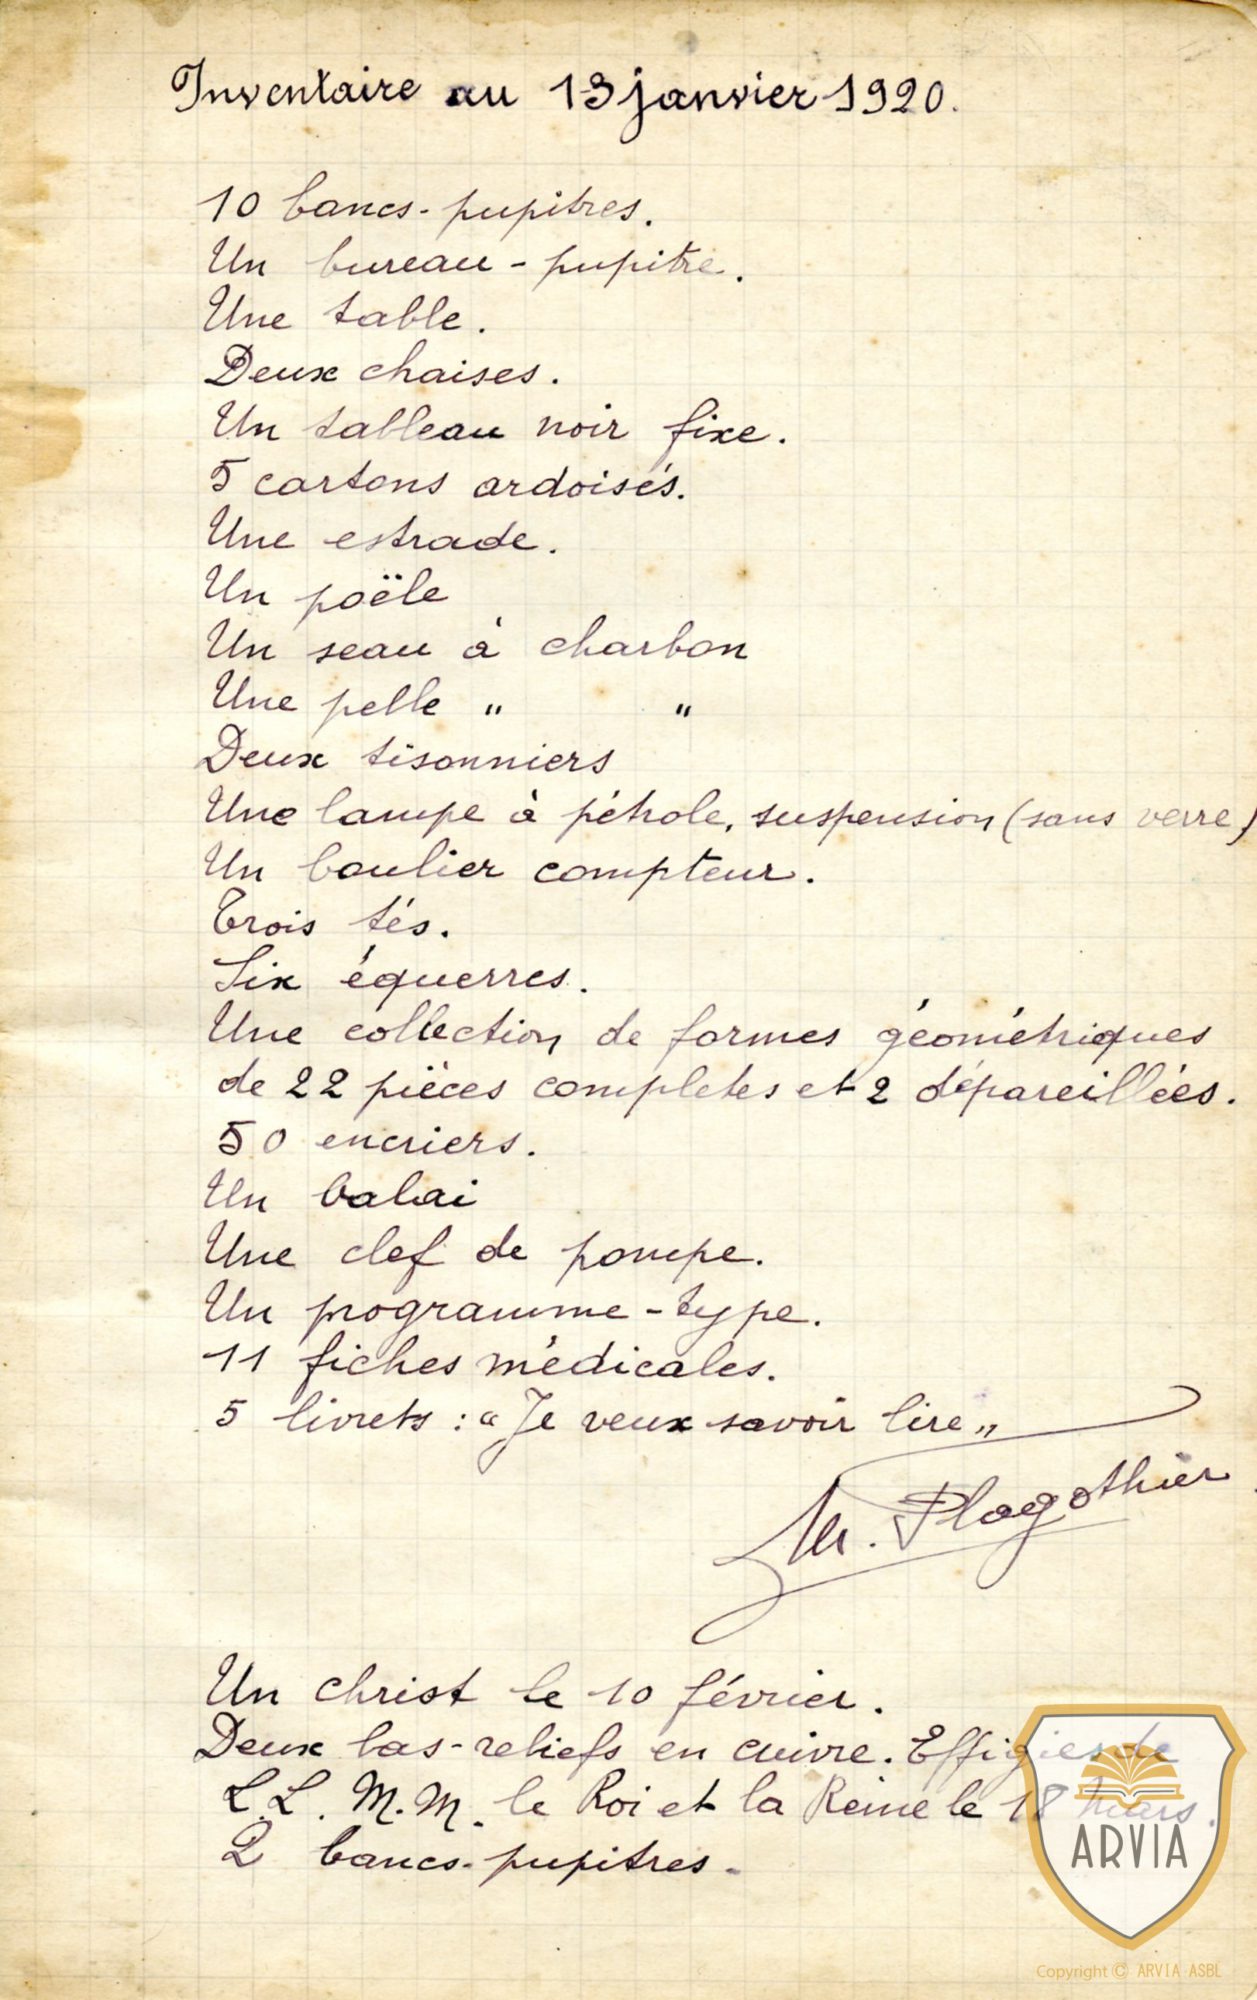 Inventaire au 13 janvier 1920.
10 bancs-pupitres.
Un bureau-pupitre.
Une table.
Deux chaises.
Un tableau noir fixe.
5 cartons ardoisés.
Une estrade.
Un poële
Un seau à charbon
Une pelle " "
Deux tisonniers
Une lampe à pétrole, suspension (sans verre)
Un boulier compteur.
Trois tés.
Six équerres.
Une collection de formes géométriques
de 22 pièces complètes et 2 dépareillées.
50 encriers.
Un balai
Une clef de pompe.
Un programme-type.
11 fiches médicales.
5 livrets : "Je veux savoir lire"
Plagothier
Un christ le 10 février.
Deux bas-reliefs en cuivre. Effigies de
L.L. M.M. le Roi et la Reine le 18 Mars.
2 bancs-pupitres.
ARVIA
Copyright © ARVIA ASBL